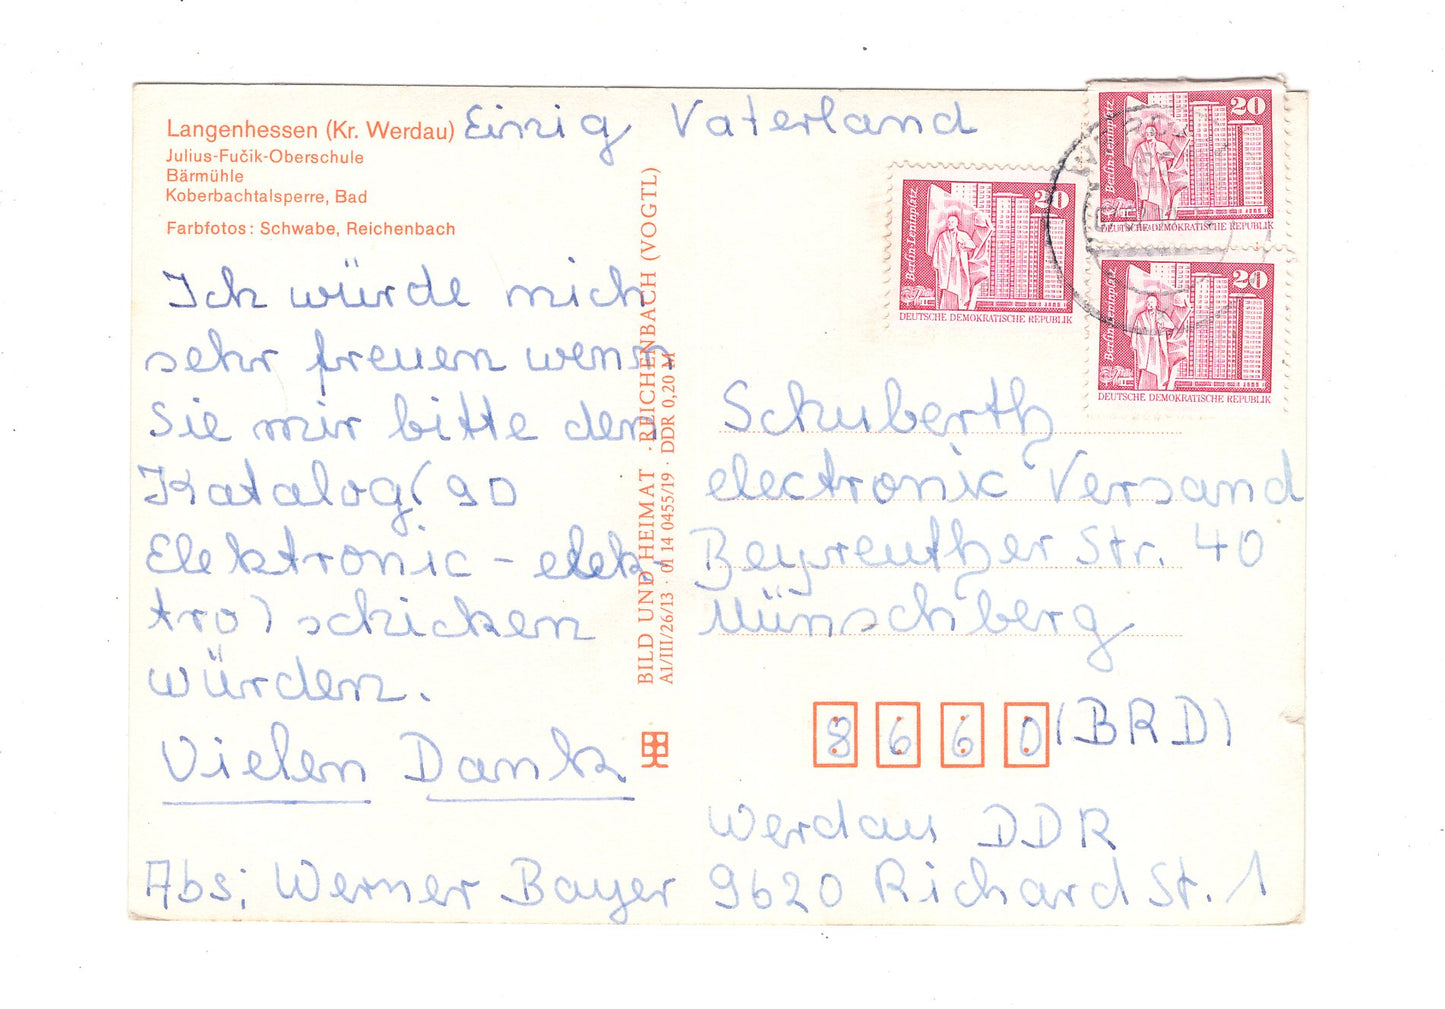 Langenhessen (Kr. Werdau)
Julius-Fučik-Oberschule
Bärmühle
Koberbachtalsperre, Bad
Farbfotos: Schwabe, Reichenbach
Einig Vaterland
Ich würde mich
sehr freuen wenn
Sie mir bitte den
Katalog(90
Elektronic-elek-
tro) schicken
würden.
Vielen Dank
Abs; Werner Bayer
BILD UND HEIMAT · REICHENBACH (VOGTL)
A1/III/26/13 · 01 14 0455/19 · DDR 0,20 M
20
Berlin-Leninplatz
DEUTSCHE DEMOKRATISCHE REPUBLIK
20
Berlin-Leninplatz
DEUTSCHE DEMOKRATISCHE REPUBLIK
20
Berlin-Leninplatz
DEUTSCHE DEMOKRATISCHE REPUBLIK
Schuberth
electronic Versand
Beyreuther Str. 40
Münschberg
8660 (BRD)
Werdau DDR
9620 Richard St. 1